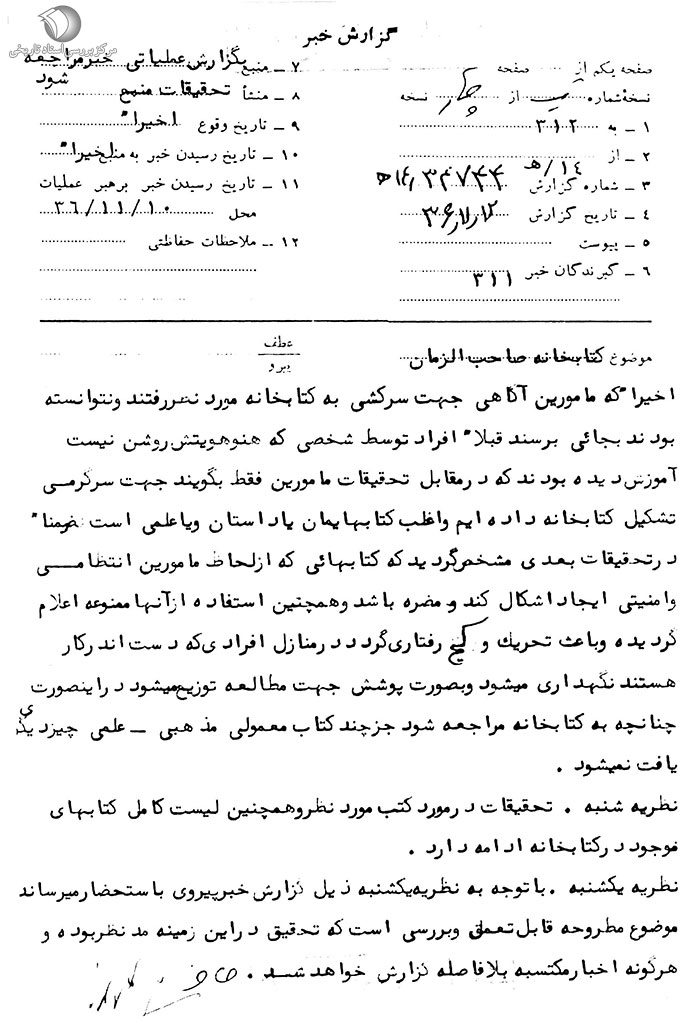 مرکز بررسی اسناد تاریخی
گزارش خبر
صفحه یکم از صفحه
نسخه شماره از چهار نسخه
۱ ـ به ۳۱۲
۲ ـ از ۱۴/ه
۳ ـ شماره گزارش
۴ ـ تاریخ گزارش
۵ ـ پیوست
۶ ـ گیرندگان خبر ۳۱۱
۷ ـ منبع بگزارش عملیاتی خبر مراجعه
شود
۸ ـ منشأ تحقیقات منبع
۹ ـ تاریخ وقوع اخیرا"
۱۰ ـ تاریخ رسیدن خبر به منبع اخیرا"
۱۱ ـ تاریخ رسیدن خبر برهبر عملیات
محل ۳۶/۱۱/۱۰
۱۲ ـ ملاحظات حفاظتی
موضوع کتابخانه صاحب الزمان
عطف
پیرو
اخیرا"که مامورین آگاهی جهت سرکشی به کتابخانه مورد نظررفتند ونتوانسته
بودند بجائی برسند قبلا" افراد توسط شخصی که هنوهویتش روشن نیست
آموزش دیده بودند که درمقابل تحقیقات مامورین فقط بگویند جهت سرگرمی
تشکیل کتابخانه داده ایم واغلب کتابهایمان یاداستان ویاعلمی است ضمنا"
درتحقیقات بعدی مشخص گردید که کتابهائی که ازلحاظ مامورین انتظامی
وامنیتی ایجاد اشکال کند و مضره باشد وهمچنین استفاده ازآنها ممنوعه اعلام
گردیده وباعث تحریک و کج رفتاری گردد درمنازل افرادی که دست اندرکار
هستند نگهداری میشود وبصورت پوشش جهت مطالعه توزیع میشود دراینصورت
چنانچه به کتابخانه مراجعه شود جزچند کتاب معمولی مذهبی ـ علمی چیزدیگری
یافت نمیشود .
نظریه شنبه . تحقیقات درمورد کتب مورد نظروهمچنین لیست کامل کتابهای
موجود درکتابخانه ادامه دارد .
نظریه یکشنبه . باتوجه به نظریه یکشنبه ذیل گزارش خبرپیروی باستحضارمیرساند
موضوع مطروحه قابل تعمق وبررسی است که تحقیق دراین زمینه مد نظربوده و
هرگونه اخبارمکتسبه بلافاصله گزارش خواهد شد .